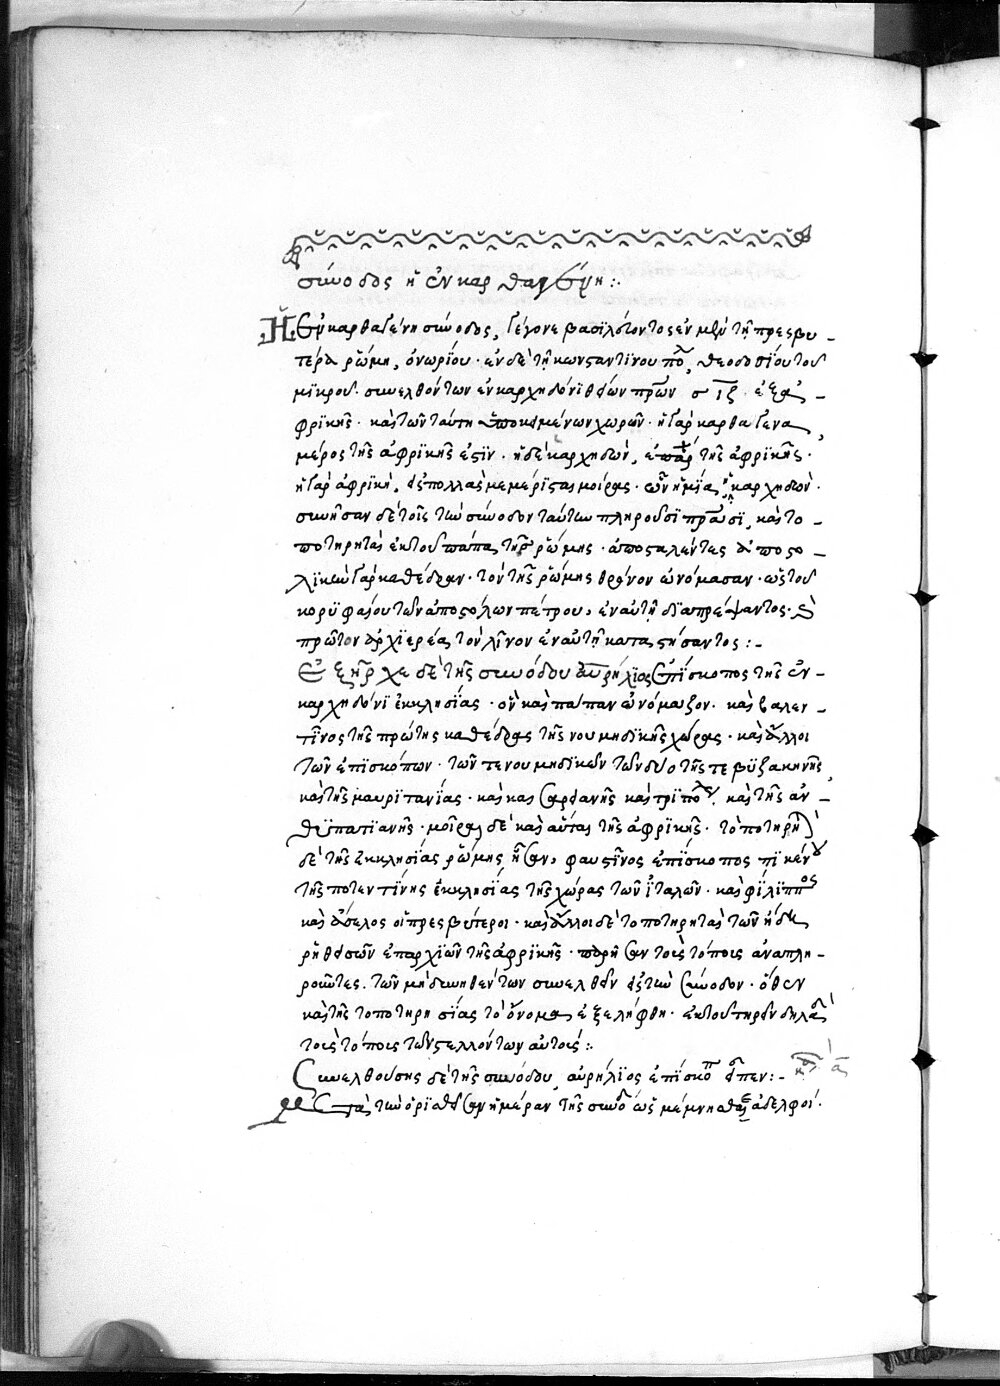 σύνοδος ἡ ἐν καρθαγένῃ :·
Ἡ ἐν καρθαγένῃ σύνοδος, γέγονε βασιλεύοντος ἐν μὲν τῇ πρεσβυ-
τέρᾳ ῥώμῃ, ὀνωρίου · ἐν δὲ τῇ κωνσταντίνου πολ, θεοδοσίου τοῦ
μϊκροῦ. συνελθόντων ἐν καρχηδόνϊ θείων πρων σιζ · ἐξ ἀ-
φρϊκῆς · καὶ τῶν ταύτῃ ὑποκειμένων χωρῶν · ἡ γὰρ καρθαγένα,
μέρος τῆς ἀφρϊκῆς ἐστϊν · ἡ δὲ καρχηδὼν, ἐπαρχ τῆς ἀφρϊκῆς ·
ἡ γὰρ ἀφρϊκὴ, εἰς πολλὰς μεμέρϊσται μοίρας · ὧν ἡ μία ἡ καρχηδών ·
συνῆσαν δὲ τοῖς τὴν σύνοδον ταύτην πληροῦσϊ πρασϊ, καὶ το-
ποτηρηταὶ ἐκ τοῦ πάπα τῆς ῥώμης · ἀποσταλέντες ἀποστο-
λϊκὴν γὰρ καθέδραν · τὸν τῆς ῥώμης θρόνον ὠνόμασαν · ὡς τοῦ
κορυφαίου τῶν ἀποστόλων πέτρου, ἐν αὐτῇ δϊαπρέψαντος · καὶ
πρῶτον ἀρχϊερέα τὸν λῖνον ἐν αὐτῇ καταστήσαντος :-
Ἐξῆρχε δὲ τῆς συνόδου αὐρήλϊος ἐπίσκοπος τῆς ἐν-
καρχηδόνϊ ἐκκλησίας · ὃν καὶ πάπαν ὠνόμαζον · καὶ βαλεν-
τῖνος τῆς πρώτης καθέδρας τῆς νουμηδϊκῆς χώρας · καὶ ἄλλοι
τῶν ἐπϊσκόπων · τῶν τε νουμηδϊκῶν τῶν δύο τῆς τε βϋζακηνῆς,
καὶ τῆς μαυρϊτανίας · καὶ καισαρειανῆς καὶ τρϊπόλεως · καὶ τῆς ἀν-
θϋπατϊανῆς · μοῖραι δὲ καὶ αὗται τῆς ἀφρϊκῆς · τοποτηρη
δὲ τῆς ἐκκλησίας ῥώμης ἦσαν, φαυστῖνος ἐπίσκοπος πϊκένου
τῆς ποτεντίνης ἐκκλησίας τῆς χώρας τῶν ἰταλῶν · καὶ φίλϊππος
καὶ ἄσελος οἱ πρεσβύτεροι · καὶ ἄλλοι δὲ τοποτηρηταὶ τῶν ἤδη
ῥηθεισῶν ἐπαρχϊῶν τῆς ἀφρϊκῆς · παρῆσαν τοὺς τόπους ἀναπλη-
ροῦντες. τῶν μὴ δυνηθέντων συνελθεῖν εἰς τὴν σύνοδον · ὅθεν
καὶ τῆς τοποτηρησίας τὸ ὄνομα ἐξελήφθη · ἐκ τοῦ τηρεῖν δηλαδὴ
τοὺς τόπους τῶν στελλόντων αὐτούς :·
Συνελθούσης δὲ τῆς συνόδου, αὐρήλϊος ἐπίσκοπ εἶπεν :-
Μετὰ τὴν ὁρϊσθεῖσαν ἡμέραν τῆς συνοδ ὡς μέμνησθαι ἀδελφοί ·